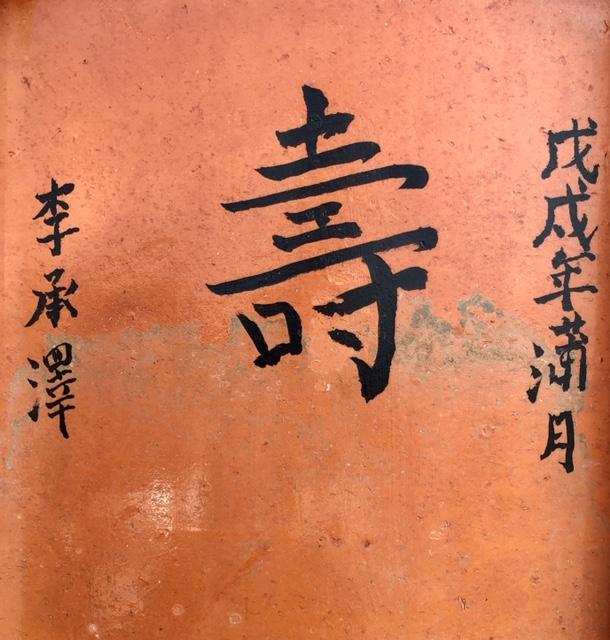 戊戌年蒲月
壽
李承澤